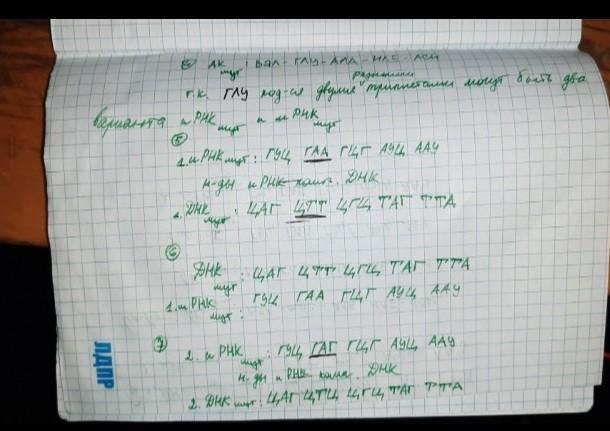 АК мут: ВАЛ - ГЛУ - АЛА - ИЛЕ - АСН
т.к ГЛУ код-ся двумя различными триплетами могут быть два
варианта иРНК мут и иРНК мут
5
1. иРНК мут: ГУЦ ГАА ГЦГ АУЦ ААУ
н-ды иРНК комп. ДНК
1. ДНК мут: ЦАГ ЦТТ ЦГЦ ТАГ ТТА
6
ДНК мут: ЦАГ ЦТТ ЦГЦ ТАГ ТТА
1. иРНК мут: ГУЦ ГАА ГЦГ АУЦ ААУ
7
2. иРНК мут: ГУЦ ГАГ ГЦГ АУЦ ААУ
н-ды иРНК комп. ДНК
2. ДНК мут: ЦАГ ЦТЦ ЦГЦ ТАГ ТТА
ЛДПР